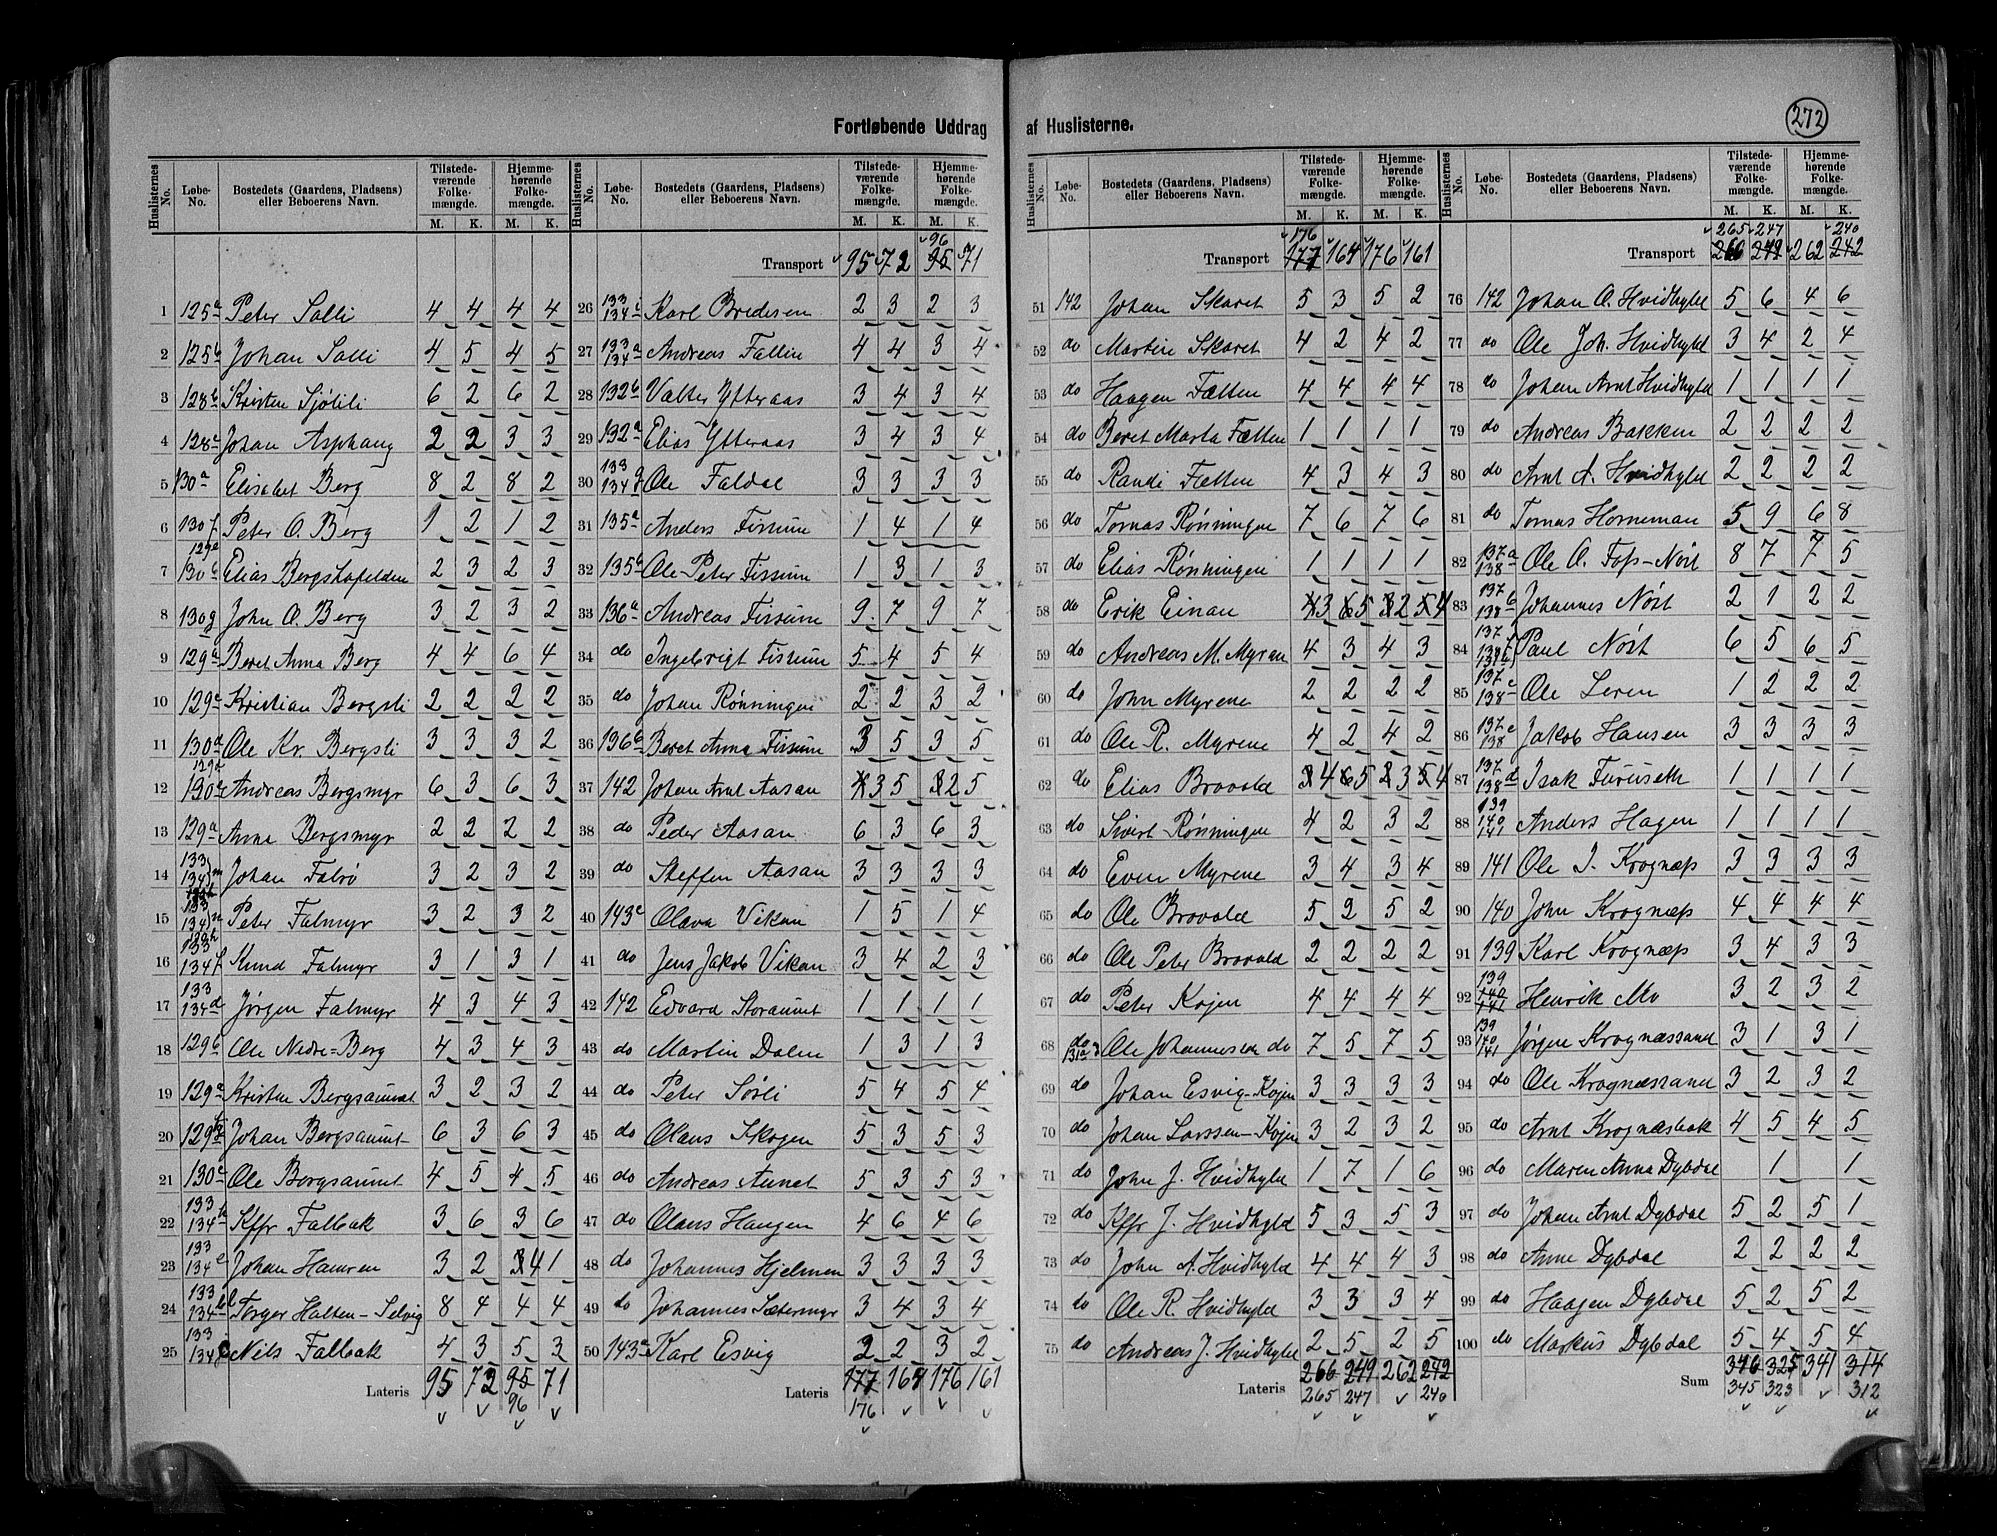 Fortløbende Uddrag af Huslisterne.
272
Huslisternes No. Løbe-No. Bostedets (Gaardens, Pladsens) eller Beboerens Navn. Tilstedeværende Folkemængde. M. K. Hjemmehørende Folkemængde. M. K.
1 125a Peter Salli 4 4 4 4
2 125b Johan Salli 4 5 4 5
3 128b Kristen Sjølili 6 2 6 2
4 128a Johan Asphaug 2 2 3 3
5 130a Elisabet Berg 8 2 8 2
6 130f Peter O. Berg 1 2 1 2
7 129e 130b Elias Bergshafelden 2 3 2 3
8 130g John O. Berg 3 2 3 2
9 129a Beret Anna Berg 4 4 6 4
10 129a Kristian Bergsli 2 2 2 2
11 130a Ole Kr. Bergsli 3 3 3 2
12 129a 130e Andreas Bergsmyr 6 3 6 3
13 129a Anna Bergsmyr 2 2 2 2
14 133 134 m Johan Falrø 3 2 3 2
15 133 134 n Peter Falmyr 3 2 3 2
16 133 134 f Knud Falmyr 3 1 3 1
17 133 134 d Jørgen Falmyr 4 3 4 3
18 129b Ole Nedre-Berg 4 3 4 3
19 129a Kristen Bergsaunet 3 2 3 2
20 129b Johan Bergsaunet 6 3 6 3
21 130c Ole Bergsaunet 4 5 4 5
22 133 134 k Kffr Falbak 3 6 3 6
23 133 134 e Johan Hamren 3 2 3 4 1
24 133 134 Torger Halten-Selvig 8 4 4 4
25 133 134 Nils Falbak 4 3 5 3
Lateris 95 72 95 71
96
Huslisternes No. Løbe-No. Bostedets (Gaardens, Pladsens) eller Beboerens Navn. Tilstedeværende Folkemængde. M. K. Hjemmehørende Folkemængde. M. K.
96
Transport 95 72 95 71
26 133 134 i Karl Bredesen 2 3 2 3
27 133 134 a Andreas Fallin 4 4 3 4
28 132b Valter Ytteraas 3 4 3 4
29 132a Elias Ytteraas 3 4 3 4
30 133 134 g Ole Faldal 3 3 3 3
31 135a Anders Fissum 1 4 1 4
32 135b Ole-Peter Fissum 1 3 1 3
33 136a Andreas Fissum 9 7 9 7
34 do Ingebrigt Fissum 5 4 5 4
35 do Johan Rønningen 2 2 3 2
36 136b Beret Anna Fissum 3 5 3 5
37 142 Johan Arnt Aasan 4 3 5 3 2 5
38 do Peder Aasan 6 3 6 3
39 do Steffen Aasan 3 3 3 3
40 143c Olava Vikan 1 5 1 4
41 do Jens Jakob Vikan 3 4 2 3
42 142 Edvard Storaunet 1 1 1 1
43 do Martin Dalen 1 3 1 3
44 do Peter Søsli 5 4 5 4
45 do Olaus Skogen 5 3 5 3
46 do Andreas Aunet 5 3 5 3
47 do Olaus Haugen 4 6 4 6
48 do Johannes Hjelmen 3 3 3 3
49 do Johannes Sætermyr 3 4 3 4
50 143a Karl Esvig 2 2 3 2
Lateris 177 164 176 161
176
Huslisternes No. Løbe-No. Bostedets (Gaardens, Pladsens) eller Beboerens Navn. Tilstedeværende Folkemængde. M. K. Hjemmehørende Folkemængde. M. K.
176
Transport 177 164 176 161
51 142 Johan Skaret 5 3 5 2
52 do Martin Skaret 4 2 4 2
53 do Haagen Fætten 4 4 4 4
54 do Beret Marta Fætten 1 1 1 1
55 do Randi Fætten 4 3 4 3
56 do Tomas Rønningen 7 6 7 6
57 do Elias Rønningen 1 1 1 1
58 do Erik Einan 4 3 6 5 3 2 5 4
59 do Andreas M. Myran 4 3 4 3
60 do John Myrene 2 2 2 2
61 do Ole R. Myrene 4 2 4 2
62 do Elias Brovold 3 4 6 5 2 3 5 4
63 do Sivert Rønningen 4 2 3 2
64 do Even Myrene 3 4 3 4
65 do Ole Brovold 5 2 5 2
66 do Ole Peter Brovold 2 2 2 2
67 do Peter Kojen 4 4 4 4
68 do 131a Ole Johannesen do 7 5 7 5
69 do Johan Esvig-Kojen 3 3 3 3
70 do Johan Larssen-Kojen 3 2 3 2
71 do John J. Hvidhyld 1 7 1 6
72 do Kffr J. Hvidhyld 5 3 5 3
73 do John A. Hvidhyld 4 4 4 3
74 do Ole R. Hvidhyld 3 3 3 4
75 do Andreas J. Hvidhyld 2 5 2 5
Lateris 266 249 262 242
265 247 240
Huslisternes No. Løbe-No. Bostedets (Gaardens, Pladsens) eller Beboerens Navn. Tilstedeværende Folkemængde. M. K. Hjemmehørende Folkemængde. M. K.
265 247 240
Transport 266 249 262 242
76 142 Johan O. Hvidhyld 5 6 4 6
77 do Ole Joh. Hvidhyld 3 4 2 4
78 do Johan Arnt Hvidhyld 1 1 1 1
79 do Andreas Bakken 2 2 2 2
80 do Arnt A. Hvidhyld 2 2 2 2
81 do Tomas Horneman 5 9 6 8
82 137a 138 Ole O. Fos-Nøst 8 7 7 5
83 137 138 b Johannes Nøst 2 1 2 2
84 137 138 f Paul Nøst 6 5 6 5
85 137 138 c Ole Leren 1 2 2 2
86 137 138 e Jakob Hansen 3 3 3 3
87 137 138 d Isak Furuseth 1 1 1 1
88 139 140 141 Anders Hagen 1 1 1 1
89 141 Ole I. Krognæs 3 3 3 3
90 140 John Krognæs 4 4 4 4
91 139 Karl Krognæs 3 4 3 3
92 139 140 141 Henrik Mo 3 2 3 2
93 139 140 141 Jørgen Krognæssand 3 1 3 1
94 do Ole Krognæssand 3 2 3 2
95 do Arnt Krognæsbak 4 5 4 5
96 do Maren Anna Dybdal 1 1
97 do Johan Arnt Dybdal 5 2 5 1
98 do Anne Dybdal 2 2 2 2
99 do Haagen Dybdal 5 2 5 2
100 do Markus Dybdal 5 4 5 4
Sum 346 325 341 314
345 323 312